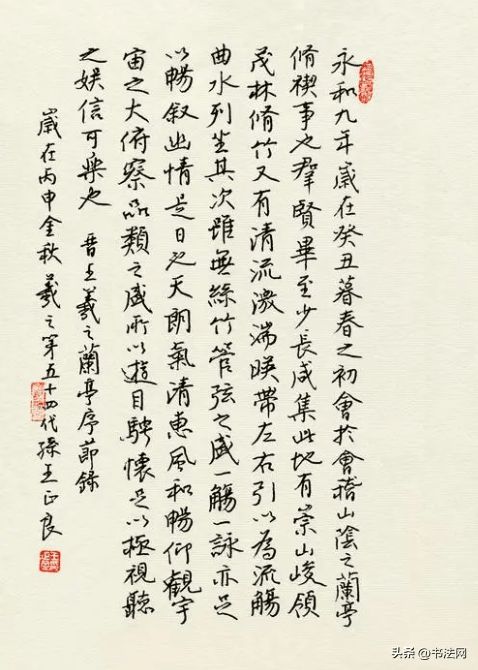 永和九年歲在癸丑暮春之初會於會稽山陰之蘭亭
脩禊事也羣賢畢至少長咸集此地有崇山峻領
茂林脩竹又有清流激湍暎帶左右引以為流觴
曲水列坐其次雖無絲竹管弦之盛一觴一詠亦足
以暢敘幽情是日也天朗氣清惠風和暢仰觀宇
宙之大俯察品類之盛所以遊目騁懷足以極視聽
之娛信可樂也 晉王羲之蘭亭序節錄
歲在丙申金秋羲之第五十四代孫王正良
头条 @书法网